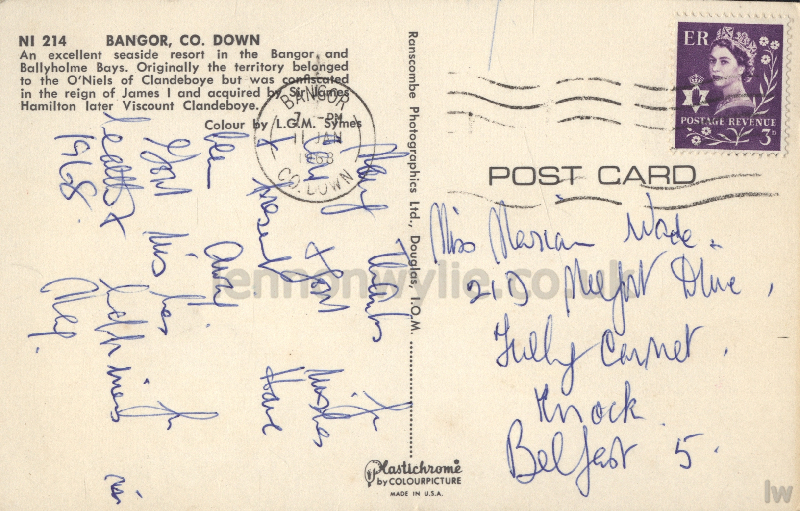 NI 214 BANGOR, CO. DOWN
An excellent seaside resort in the Bangor and
Ballyholme Bays. Originally the territory belonged
to the O'Niels of Clandeboye but was confiscated
in the reign of James I and acquired by Sir James
Hamilton later Viscount Clandeboye.
Colour by L.G.M. Symes
BANGOR
7 - PM
11 JAN
1968
CO. DOWN
Many Thanks for
& good wishes
& present Have
and
good wishes for
health & happiness in
1968.
Ranscombe Photographics Ltd., Douglas, I.O.M.
Plastichrome
by COLOURPICTURE
MADE IN U.S.A.
E R
POSTAGE REVENUE
3D
POST CARD
Miss Marian Wade.
210 Melfort Drive,
Tully Carnet.
Knock
Belfast 5.
lennonwylie.co.uk
lw